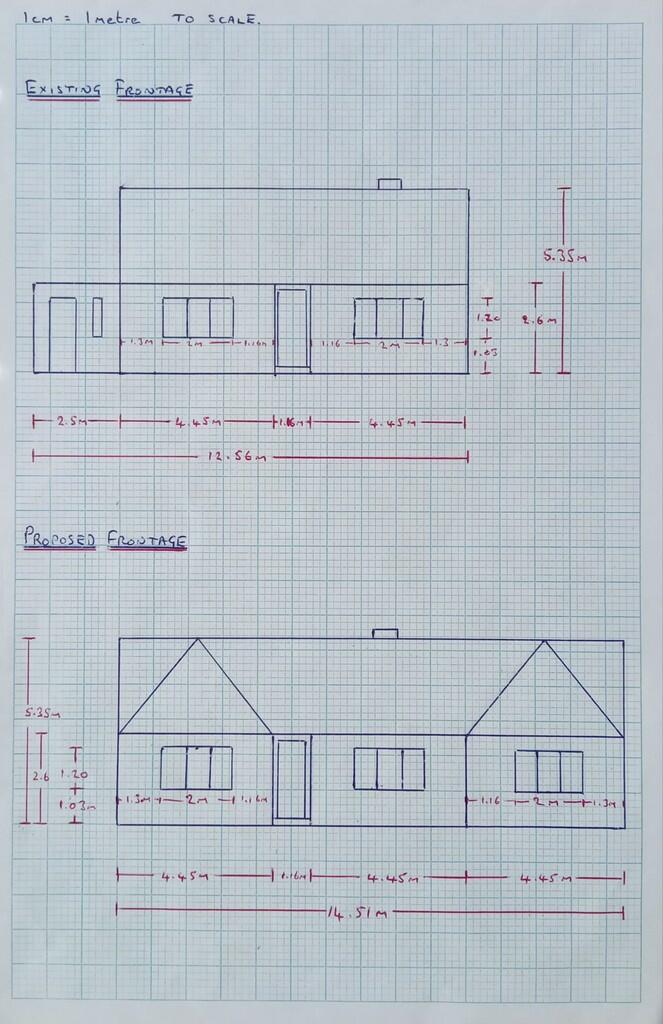 1cm = 1metre TO SCALE.
EXISTING FRONTAGE
5.35m
1.20
2.6m
1.3m 2m 1.16m 1.16 2m 1.3
1.03
2.5m 4.45m 1.16m 4.45m
12.56m
PROPOSED FRONTAGE
5.35m
2.6 1.20
1.03m
1.3m 2m 1.16m 1.16 2m 1.3m
4.45m 1.16m 4.45m 4.45m
14.51m